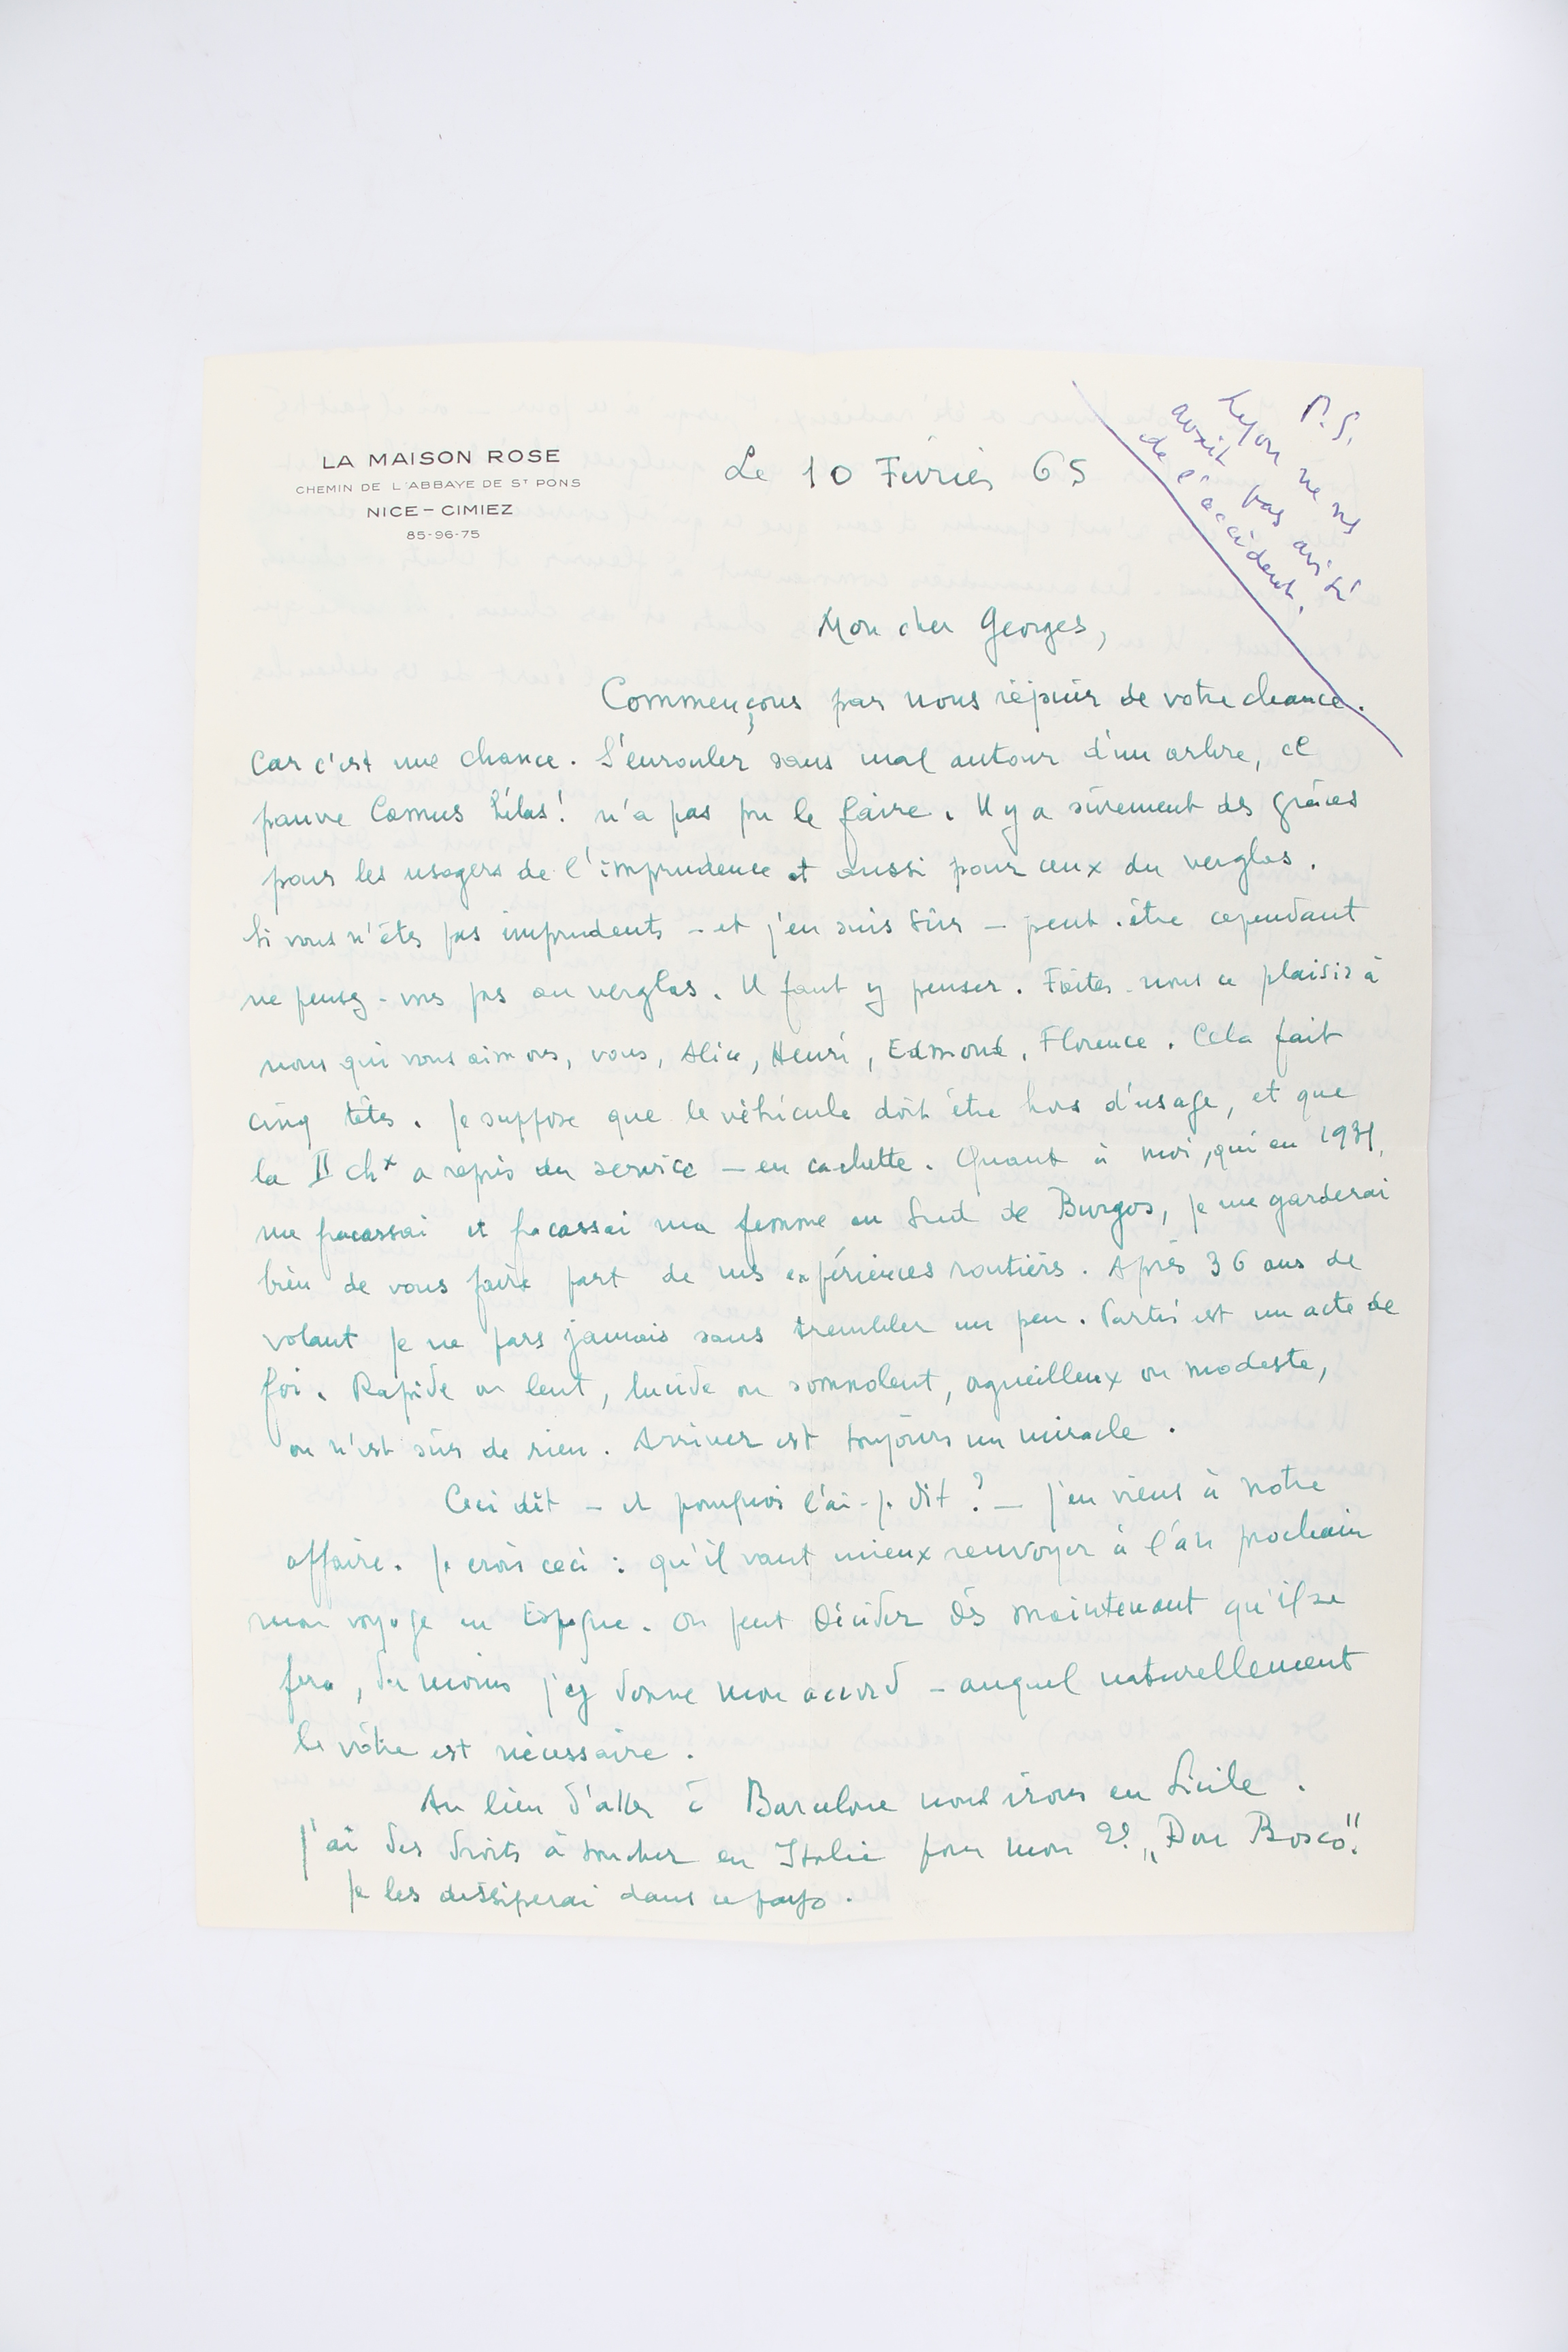 LA MAISON ROSE
CHEMIN DE L'ABBAYE DE ST PONS
NICE - CIMIEZ
85-96-75
Le 10 Février 65
P.S.
Lyon ne ns
avait pas avisé
de l'accident.
Mon cher Georges,
Commençons par nous réjouir de votre chance.
Car c'est une chance. S'enrouler sans mal autour d'un arbre, ce
pauvre Camus hélas! n'a pas pu le faire. Il y a sûrement des grâces
pour les usagers de l'imprudence et aussi pour ceux du verglas.
Si vous n'êtes pas imprudents - et j'en suis sûr - peut-être cependant
ne pensez-vous pas au verglas. Il faut y penser. Faites-nous ce plaisir à
nous qui vous aimons, vous, Alice, Henri, Edmond, Florence. Cela fait
cinq têtes. Je suppose que le véhicule doit être hors d'usage, et que
la II chx a repris du service - en cachette. Quant à moi, qui en 1931,
me fracassai et fracassai ma femme au Sud de Burgos, je me garderai
bien de vous faire part de mes expériences routières. Après 36 ans de
volant je ne pars jamais sans trembler un peu. Partir est un acte de
foi. Rapide ou lent, lucide ou somnolent, orgueilleux ou modeste,
on n'est sûr de rien. Arriver est toujours un miracle.
Ceci dit - et pourquoi l'ai-je dit ? - j'en viens à notre
affaire. Je crois ceci : qu'il vaut mieux renvoyer à l'an prochain
mon voyage en Espagne. On peut décider dès maintenant qu'il se
fera, du moins j'y donne mon accord - auquel naturellement
le vôtre est nécessaire.
Au lieu d'aller à Barcelone nous irons en Sicile.
J'ai des droits à toucher en Italie pour mon 2e "Don Bosco".
Je les dissiperai dans ce pays.